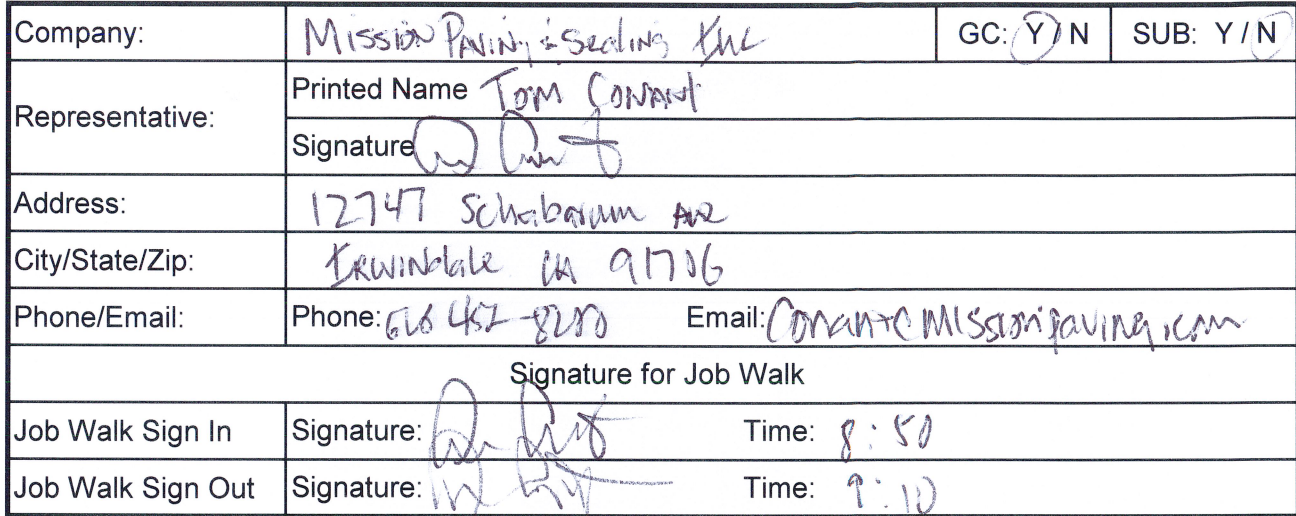 Company: Mission Paving & Sealing Inc GC: Y / N SUB: Y / N
Representative: Printed Name Tom Conant
Signature
Address: 12747 Schabarum Ave
City/State/Zip: Irwindale CA 91706
Phone/Email: Phone: 626 452-8200 Email: Conant@Missionpaving.com
Signature for Job Walk
Job Walk Sign In Signature: Time: 8:50
Job Walk Sign Out Signature: Time: 9:10